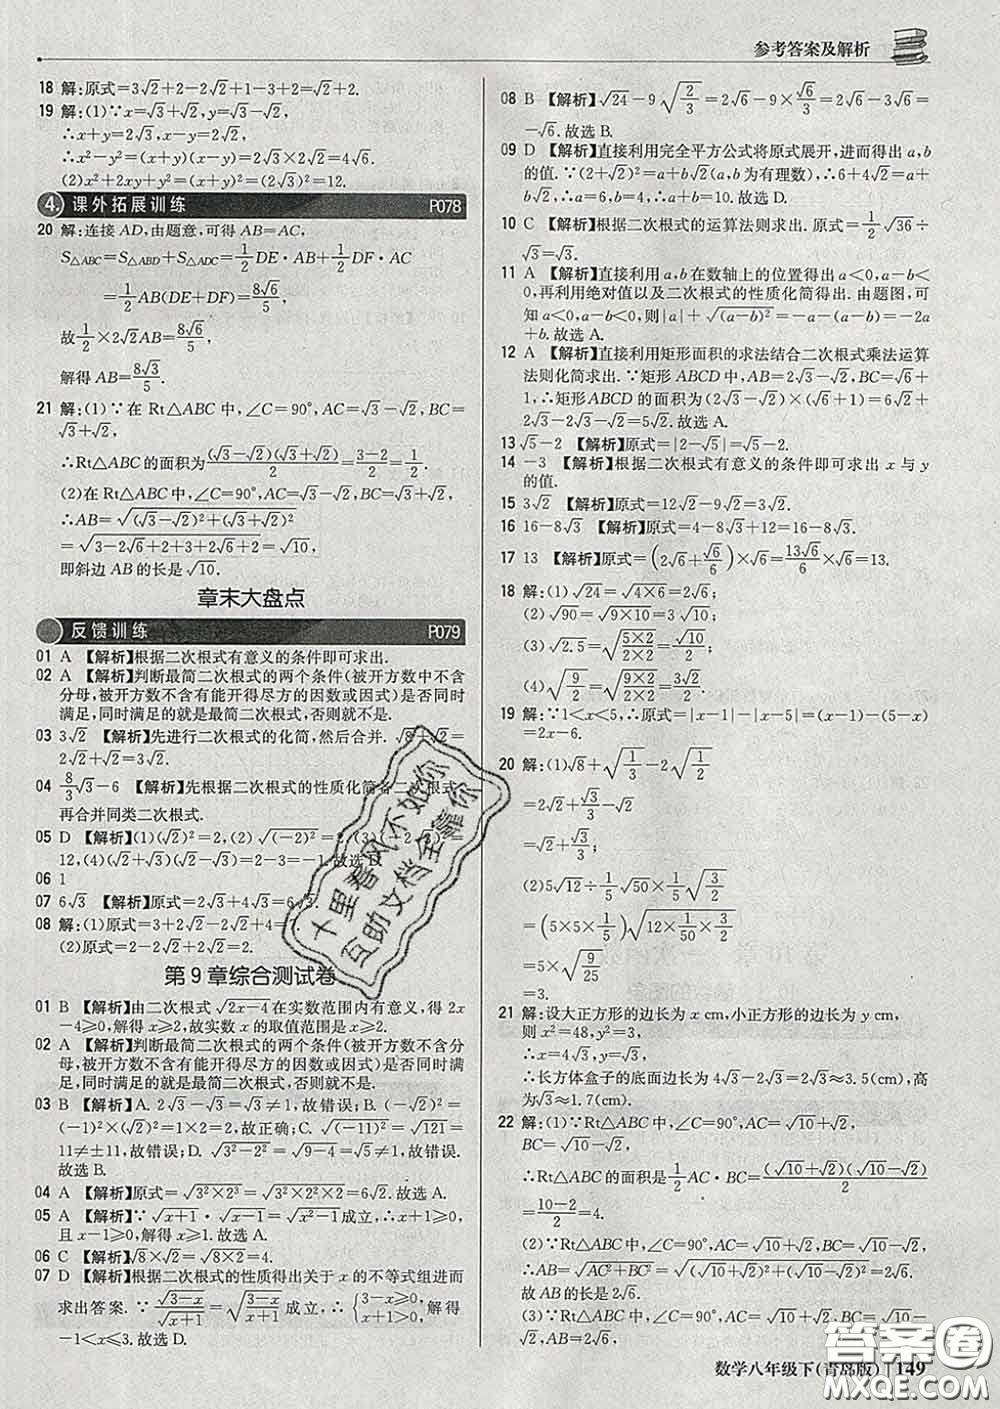 参考答案及解析
18 解:原式=3√2+2-2√2+1-3+2=√2+2.
19 解:(1)∵x=√3+√2,y=√3-√2,
∴x+y=2√3,x-y=2√2,
∴x²-y²=(x+y)(x-y)=2√3×2√2=4√6.
(2)x²+2xy+y²=(x+y)²=(2√3)²=12.
4. 课外拓展训练 P078
20 解:连接AD,由题意,可得AB=AC,
S△ABC=S△ABD+S△ADC=1/2DE·AB+1/2DF·AC
=1/2AB(DE+DF)=8√6/5,
故1/2×2√2AB=8√6/5,
解得AB=8√3/5.
21 解:(1)∵在Rt△ABC中,∠C=90°,AC=√3-√2,BC=
√3+√2,
∴Rt△ABC的面积为(√3-√2)(√3+√2)/2=(3-2)/2=1/2.
(2)在Rt△ABC中,∠C=90°,AC=√3-√2,BC=√3+√2,
∴AB=√((√3-√2)²+(√3+√2)²)
=√(3-2√6+2+3+2√6+2)=√10,
即斜边AB的长是√10.
章末大盘点
反馈训练 P079
01 A 【解析】根据二次根式有意义的条件即可求出.
02 A 【解析】判断最简二次根式的两个条件(被开方数中不含
分母,被开方数不含有能开得尽方的因数或因式)是否同时
满足,同时满足的就是最简二次根式,否则就不是.
03 3√2 【解析】先进行二次根式的化简,然后合并. √8+√2=
2√2+√2=3√2.
04 8/3√3-6 【解析】先根据二次根式的性质化简各二次根式,
再合并同类二次根式.
05 D 【解析】(1)(√2)²=2,(2)√((-2)²)=2,(3)(-2√3)²=
12,(4)(√2+√3)(√2-√3)=2-3=-1.故选D.
06 1
07 6√3 【解析】原式=2√3+4√3=6√3.
08 解:(1)原式=3+2√2-2√2+4=
(2)原式=2+√2-√2=2.
第9章综合测试卷
01 B 【解析】由二次根式√(2x-4)在实数范围内有意义,得2x
-4≥0,解得x≥2,故实数x的取值范围是x≥2.
02 A 【解析】判断最简二次根式的两个条件(被开方数不含分
母,被开方数不含有能开得尽方的因数或因式)是否同时满
足,同时满足的就是最简二次根式,否则就不是.
03 B 【解析】A. 2√3-√3=√3≠1,故错误;B. (-√2)²=
(-1)²×(√2)²=2,故正确;C. √((-11)²)=√121=
11≠±11,故错误;D. √(3²-2²)=√(9-4)=√5≠1,故错误.
故选B.
04 A 【解析】原式=√(3²×2³)=√(3²×2²×2)=6√2.故选A.
05 A 【解析】∵√(x+1)·√(x-1)=√(x²-1)成立,∴x+1≥0,
且x-1≥0,解得x≥1.故选A.
06 C 【解析】√8×√2=√(8×2)=4.
07 D 【解析】根据二次根式的性质得出关于x的不等式组进而
求出答案. ∵√(3-x)/√(x+1)=√((3-x)/(x+1))成立,∴{3-x≥0, x+1>0, 解得
-1<x≤3.故选D.
08 B 【解析】√24-9√(2/3)=2√6-9×√6/3=2√6-3√6=
-√6.故选B.
09 D 【解析】直接利用完全平方公式将原式展开,进而得出a,b
的值. ∵(2+√2)²=a+b√2(a,b为有理数),∴6+4√2=a+
b√2,∴a=6,b=4,∴a+b=10.故选D.
10 C 【解析】根据二次根式的运算法则求出. 原式=1/2√36÷
√3=√3.
11 A 【解析】直接利用a,b在数轴上的位置得出a<0,a-b<
0,再利用绝对值以及二次根式的性质化简得出. 由题图,可
知a<0,a-b<0,则|a|+√((a-b)²)=-a-(a-b)=-2a
+b.故选A.
12 A 【解析】直接利用矩形面积的求法结合二次根式乘法运算
法则化简求出. ∵矩形ABCD中,AB=2√3-√2,BC=√6+
1,∴矩形ABCD的面积为(2√3-√2)×(√6+1)=6√2+
2√3-2√3-√2=5√2.故选A.
13 √5-2 【解析】原式=|2-√5|=√5-2.
14 -3 【解析】根据二次根式有意义的条件即可求出x与y
的值.
15 3√2 【解析】原式=12√2-9√2=3√2.
16 16-8√3 【解析】原式=4-8√3+12=16-8√3.
17 13 【解析】原式=(2√6+√6/6)×√6=13√6/6×√6=13.
18 解:(1)√24=√(4×6)=2√6;
(2)√90=√(9×10)=3√10;
(3)√2.5=√((5×2)/(2×2))=√10/2;
(4)√(9/2)=√((9×2)/(2×2))=3√2/2.
19 解:∵1<x<5,∴原式=|x-1|-|x-5|=(x-1)-(5-x)
=2x-6.
20 解:(1)√8+√(1/3)-2√(1/2)
=2√2+√3/3-√2
=√2+√3/3;
(2)5√12÷1/5√50×1/5√(3/2)
=(5×5×1/5)√(12×1/50×3/2)
=5×√(9/25)
=3.
21 解:设大正方形的边长为x cm,小正方形的边长为y cm,
则x²=48,y²=3,
∴x=4√3,y=√3,
∴长方体盒子的底面边长为4√3-2√3=2√3≈3.5(cm),高
为√3≈1.7(cm).
22 解:(1)∵Rt△ABC中,∠C=90°,AC=√10+√2,
BC=√10-√2,
∴Rt△ABC的面积是1/2AC·BC=(√10+√2)(√10-√2)/2=
(10-2)/2=4.
(2)∵Rt△ABC中,∠C=90°,AC=√10+√2,BC=√10-√2,
∴AB=√(AC²+BC²)=√((√10+√2)²+(√10-√2)²)=2√6.
故AB的长是2√6.
(3)∵Rt△ABC中,∠C=90°,AC=√10+√2,BC=√10
-√2,AB=2√6,
十里春风不如你
互助文档全靠你
答案圈
MXQE.COM
数学八年级下(青岛版) 149